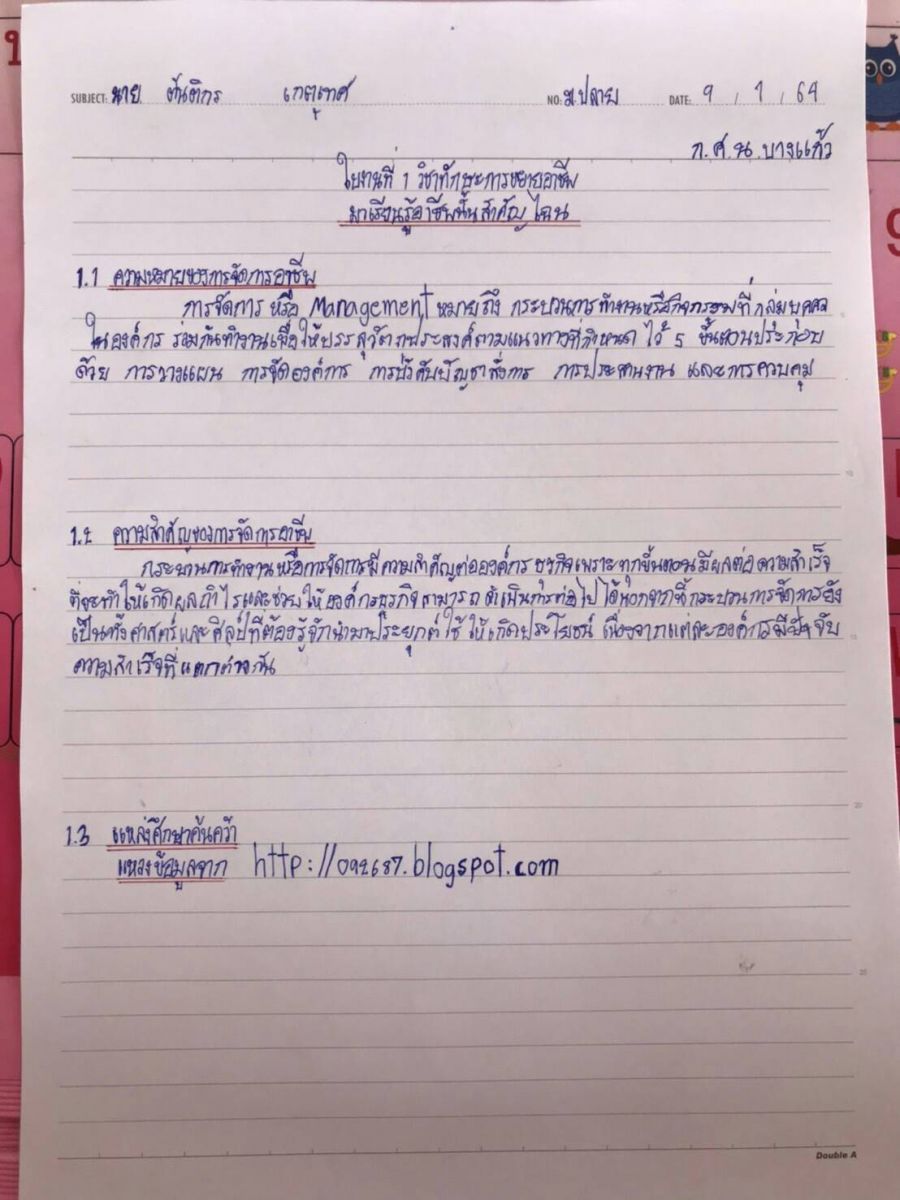 SUBJECT: นาย ตันติกร เกตุเทศ NO: ม.ปลาย DATE: 9 / 1 / 64
ก.ศ.น.บางแก้ว
ใบงานที่ 1 วิชาทักษะการขยายอาชีพ
มาเรียนรู้อาชีพนั้นสำคัญไฉน
1.1 ความหมายของการจัดการอาชีพ
การจัดการ หรือ Management หมายถึง กระบวนการทำงานหรือกิจกรรมที่กลุ่มบุคคล
ในองค์กร ร่วมกันทำงานเพื่อให้บรรลุวัตถุประสงค์ตามแนวทางที่กำหนด ไว้ 5 ขั้นตอนประกอบ
ด้วย การวางแผน การจัดองค์การ การบังคับบัญชาสั่งการ การประสานงาน และการควบคุม
1.2 ความสำคัญของการจัดการอาชีพ
กระบวนการทำงาน หรือการจัดการมีความสำคัญต่อองค์กร ธุรกิจเพราะทุกขั้นตอนมีผลต่อความสำเร็จ
ที่จะทำให้เกิดผลกำไรและช่วยให้องค์กรธุรกิจสามารถดำเนินการต่อไปได้นอกจากนี้กระบวนการจัดการยัง
เป็นทั้งศาสตร์และศิลป์ที่ต้องรู้จักนำมาประยุกต์ใช้ให้เกิดประโยชน์ เนื่องจากแต่ละองค์กรมีปัจจับ
ความสำเร็จที่แตกต่างกัน
1.3 แหล่งศึกษาค้นคว้า
แหล่งข้อมูลจาก http://092687.blogspot.com
Double A